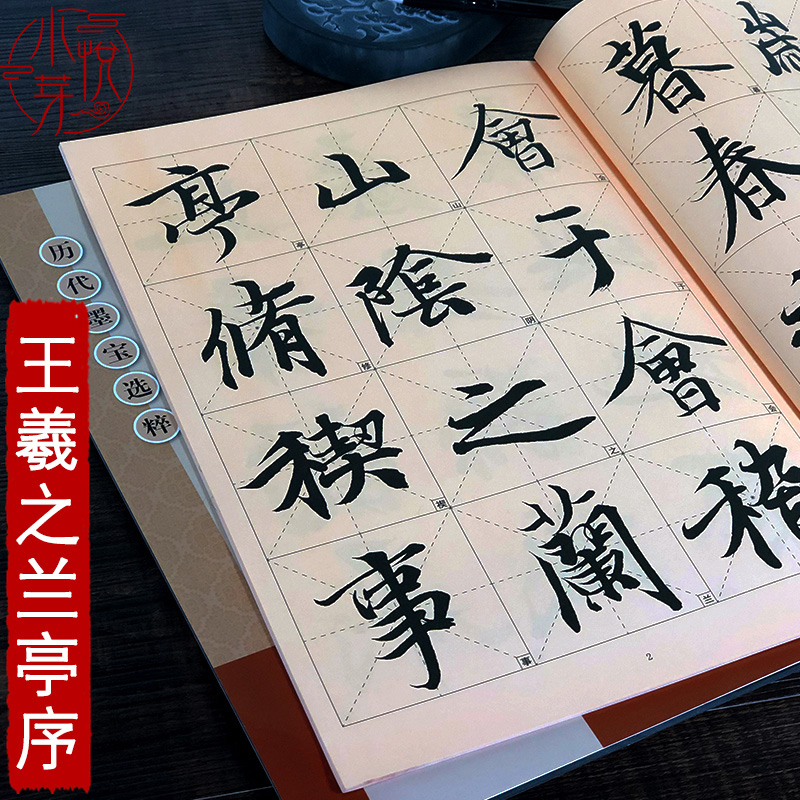 小芽悦
历代墨宝选粹
王羲之兰亭序
暮春
會于會稽
山陰之蘭
亭脩禊事
会于会
山阴之兰
亭修禊事
2